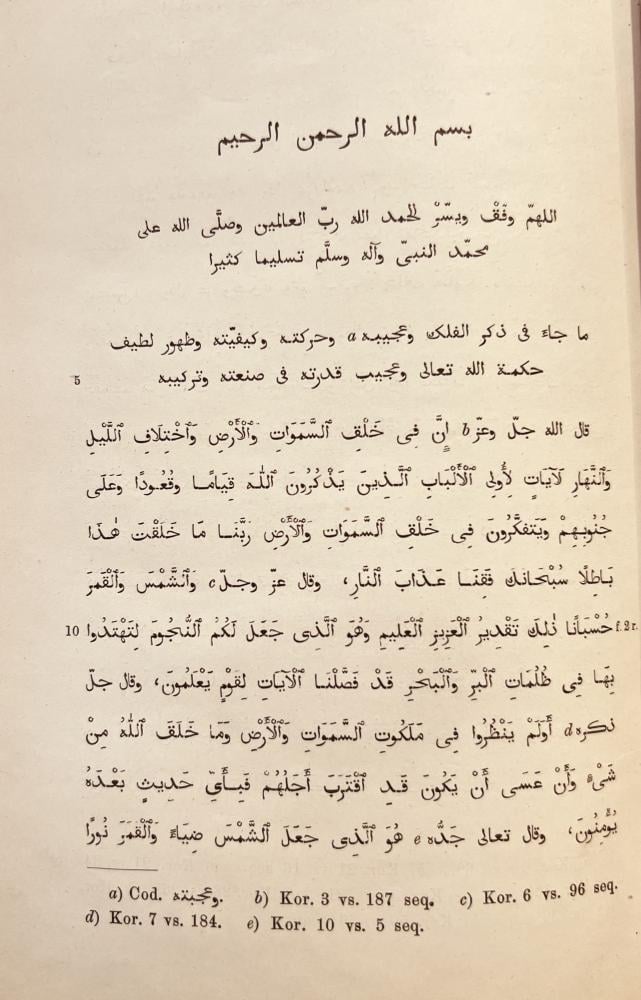 بسم الله الرحمن الرحيم
اللهمّ وَفّقْ ويسّرْ الحمد الله ربّ العالمين وصلَّى الله على
محمّد النبىّ وآله وسلَّم تسليما كثيرا
ما جاءَ فى ذكر الفلك وعجيبه a وحركته وكيفيّته وظهور لطيف
5 حكمة الله تعالى وعجيب قدرته فى صنعته وتركيبه
قال الله جلّ وعزّ b إِنَّ فِى خَلْقِ ٱلسَّمَوَاتِ وَٱلْأَرْضِ وَٱخْتِلَافِ ٱللَّيْلِ
وَٱلنَّهَارِ لَآيَاتٍ لِأُولِى ٱلْأَلْبَابِ ٱلَّذِينَ يَذْكُرُونَ ٱللَّهَ قِيَامًا وَقُعُودًا وَعَلَى
جُنُوبِهِمْ وَيَتَفَكَّرُونَ فِى خَلْقِ ٱلسَّمَوَاتِ وَٱلْأَرْضِ رَبَّنَا مَا خَلَقْتَ هٰذَا
بَاطِلًا سُبْحَانَكَ فَقِنَا عَذَابَ ٱلنَّارِ، وقال عزّ وجلّ c وَٱلشَّمْسَ وَٱلْقَمَرَ
f. 2 r. حُسْبَانًا ذٰلِكَ تَقْدِيرُ ٱلْعَزِيزِ ٱلْعَلِيمِ وَهُوَ ٱلَّذِى جَعَلَ لَكُمُ ٱلنُّجُومَ لِتَهْتَدُوا 10
بِهَا فِى ظُلُمَاتِ ٱلْبَرِّ وَٱلْبَحْرِ قَدْ فَصَّلْنَا ٱلْآيَاتِ لِقَوْمٍ يَعْلَمُونَ، وقال جلّ
ذكره d أَوَلَمْ يَنْظُرُوا فِى مَلَكُوتِ ٱلسَّمَوَاتِ وَٱلْأَرْضِ وَمَا خَلَقَ ٱللَّهُ مِنْ
شَىْءٍ وَأَنْ عَسَى أَنْ يَكُونَ قَدِ ٱقْتَرَبَ أَجَلُهُمْ فَبِأَىِّ حَدِيثٍ بَعْدَهُ
يُؤْمِنُونَ، وقال تعالى جَدُّه e هُوَ ٱلَّذِى جَعَلَ ٱلشَّمْسَ ضِيَاءً وَٱلْقَمَرَ نُورًا
a) Cod. وعجبته. b) Kor. 3 vs. 187 seq. c) Kor. 6 vs. 96 seq.
d) Kor. 7 vs. 184. e) Kor. 10 vs. 5 seq.